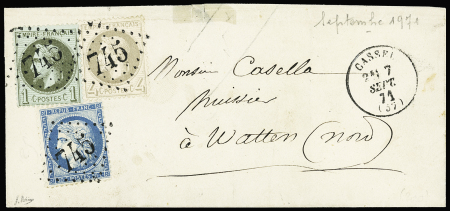 Septembre 1971
EMPIRE FRANÇAIS
FRANÇAIS
745
745
1 POSTES 1
2
2
REPUB FRANC
745
CASSEL
7
SEPT.
71
(57)
Monsieur Casella
huissier
à Watten (Nord)